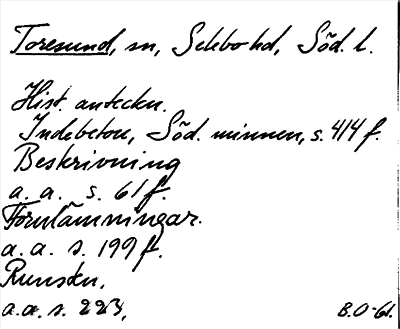 Toresund, sn, Selebo hd, Söd. l.
Hist. anteckn.
Indebetou, Söd. minnen, s. 414 f.
Beskrivning
a. a. s. 61 f.
Fornlämningar.
a. a. s. 199 f.
Runstn.
a. a. s. 223,
B.O-61.